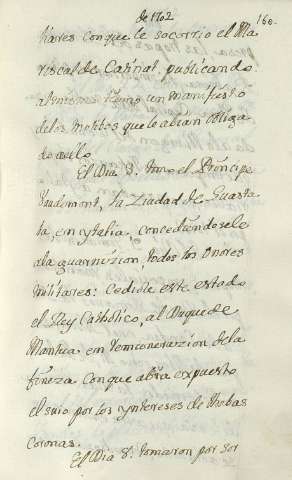 de 1702
160.
liares con que le socorrio el Ma
riscal de Catinat, publicando
al mismo tiempo un manifiesto
de los motibos que le abian obliga
do a ello.
El Dia 8. tomo el Principe
Vaudemont, la Ziudad de Guasta
la, en ytalia, concediendosele
a la guarnizion, todos los onores
militares: Cedio le este estado
el Rey Catholico, al Duque de
Mantua en remoneracion de la
fineza con que abia expuesto
el suio por los yntereses de Ambas
coronas.
El Dia 8. tomaron por Sor